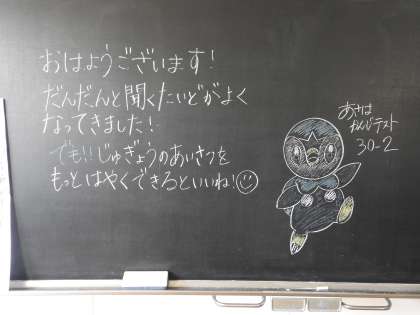 おはようございます!
だんだんと聞くたいどがよく
なってきました!
でも!!じゅぎょうのあいさつを
もっとはやくできるといいね!
あさは
かんじテスト
30-2